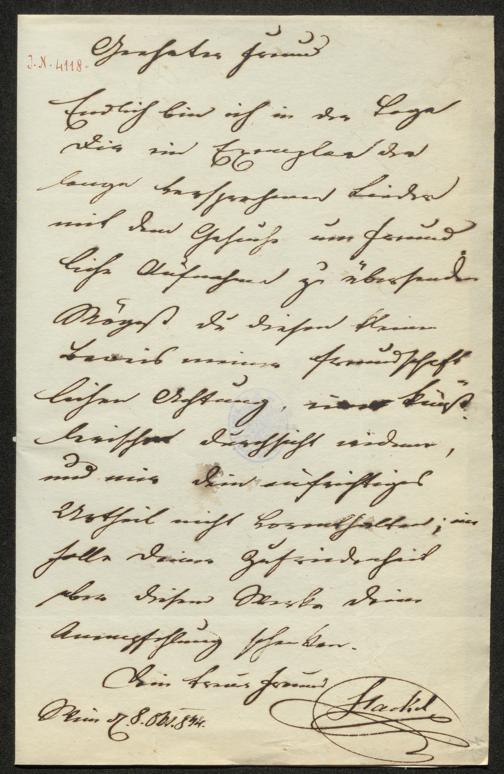 Geehrter Freund
I.N. 4118.
Endlich bin ich in der Lage
Dir ein Exemplar der
lange versprochenen Lieder
mit dem Gesuche um freund
liche Aufnahme zu übersenden
Mögest du diesen kleinen
Beweis meiner freundschaft
lichen Achtung, einer künst
lerischen Durchsicht widmen,
und mir dein aufrichtiges
Urtheil nicht vorenthalten; im
falle Deiner Zufriedenheit
aber diesem Werke Deine
Anempfehlung schenken.
Dein treuer Freund
Hackel
Wien d. 8. Okt. 844.